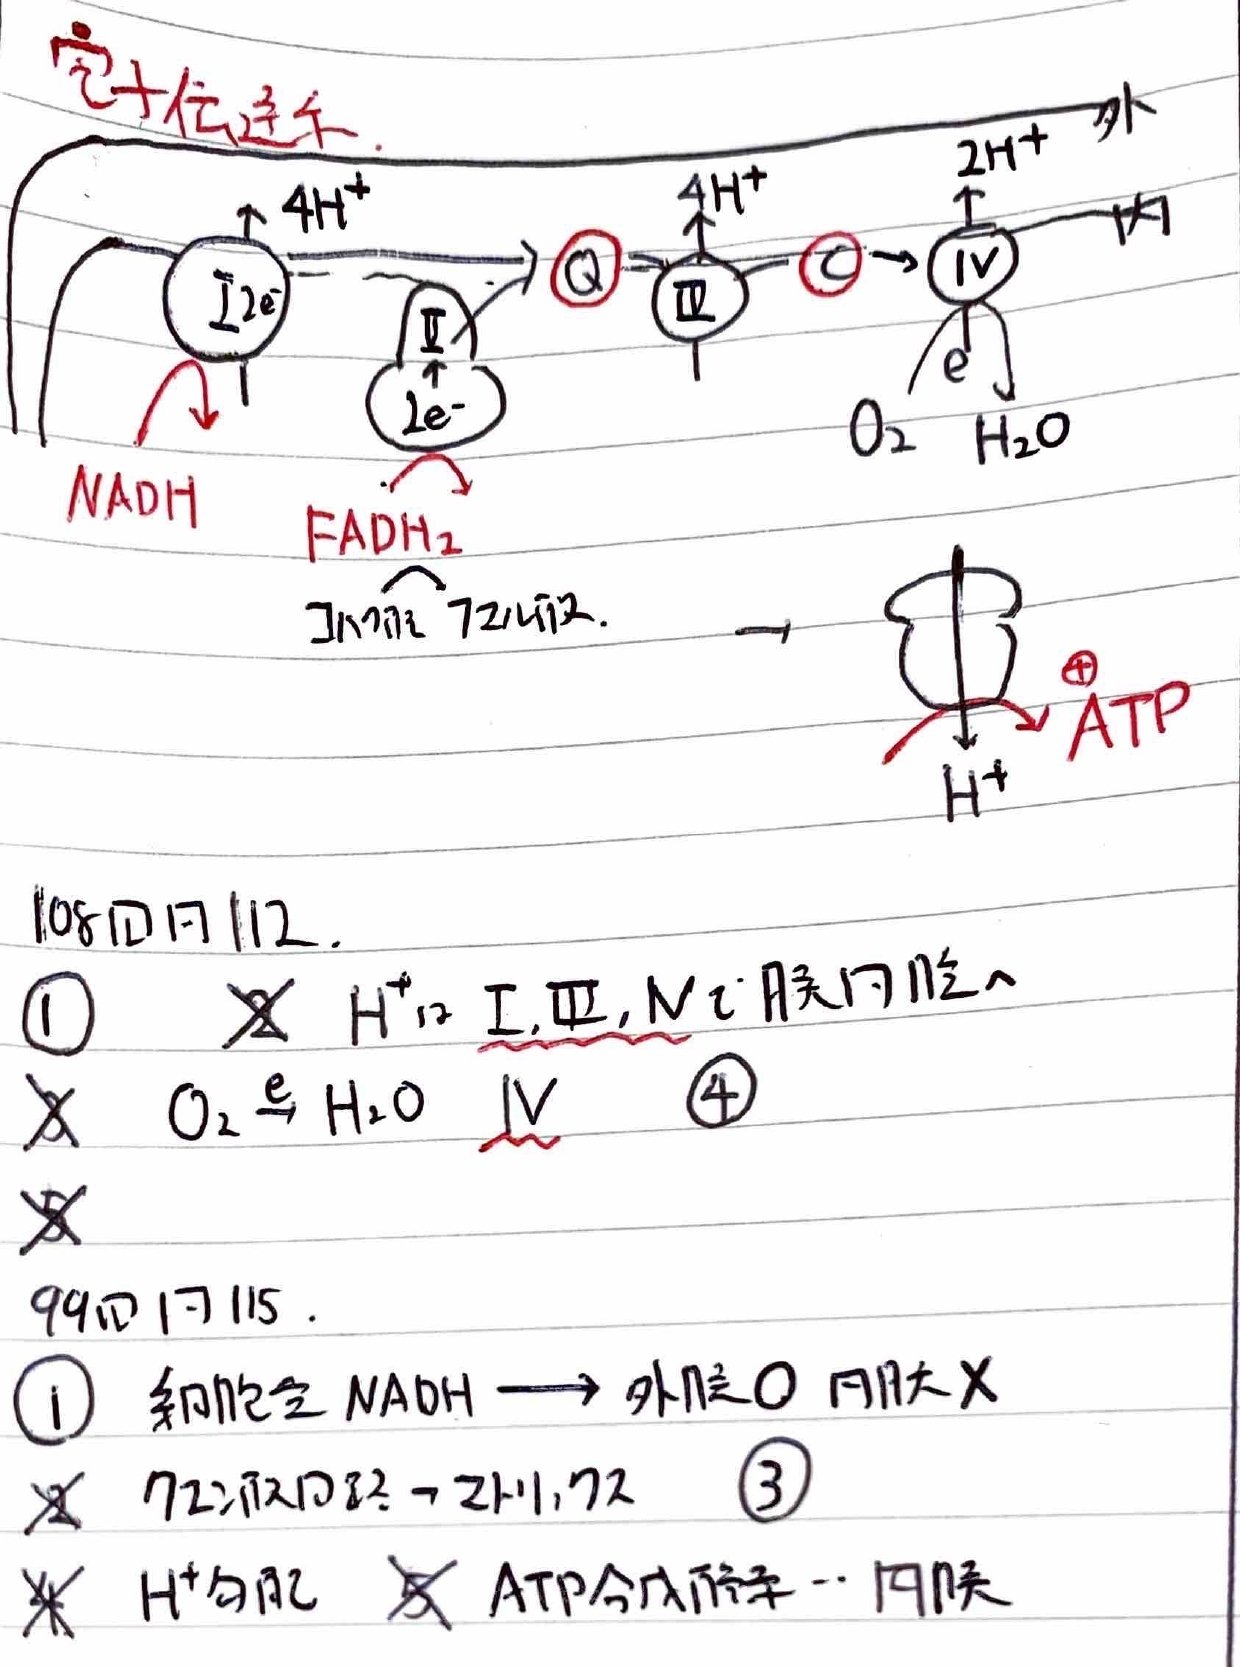 電子伝達系.
外
4H⁺ 4H⁺ 2H⁺
内
I 2e⁻ II Q III C IV
2e⁻ e
O₂ H₂O
NADH
FADH₂
コハク酸 フマル酸.
⊕
ATP
H⁺
108回問112.
① 2 H⁺は I, III, IVで膜間腔へ
3 O₂ e→ H₂O IV ④
5
99回問115.
① 細胞全 NADH → 外膜○ 内膜×
2 クエン酸回路→マトリックス ③
4 H⁺勾配 5 ATP合成酵素‥内膜